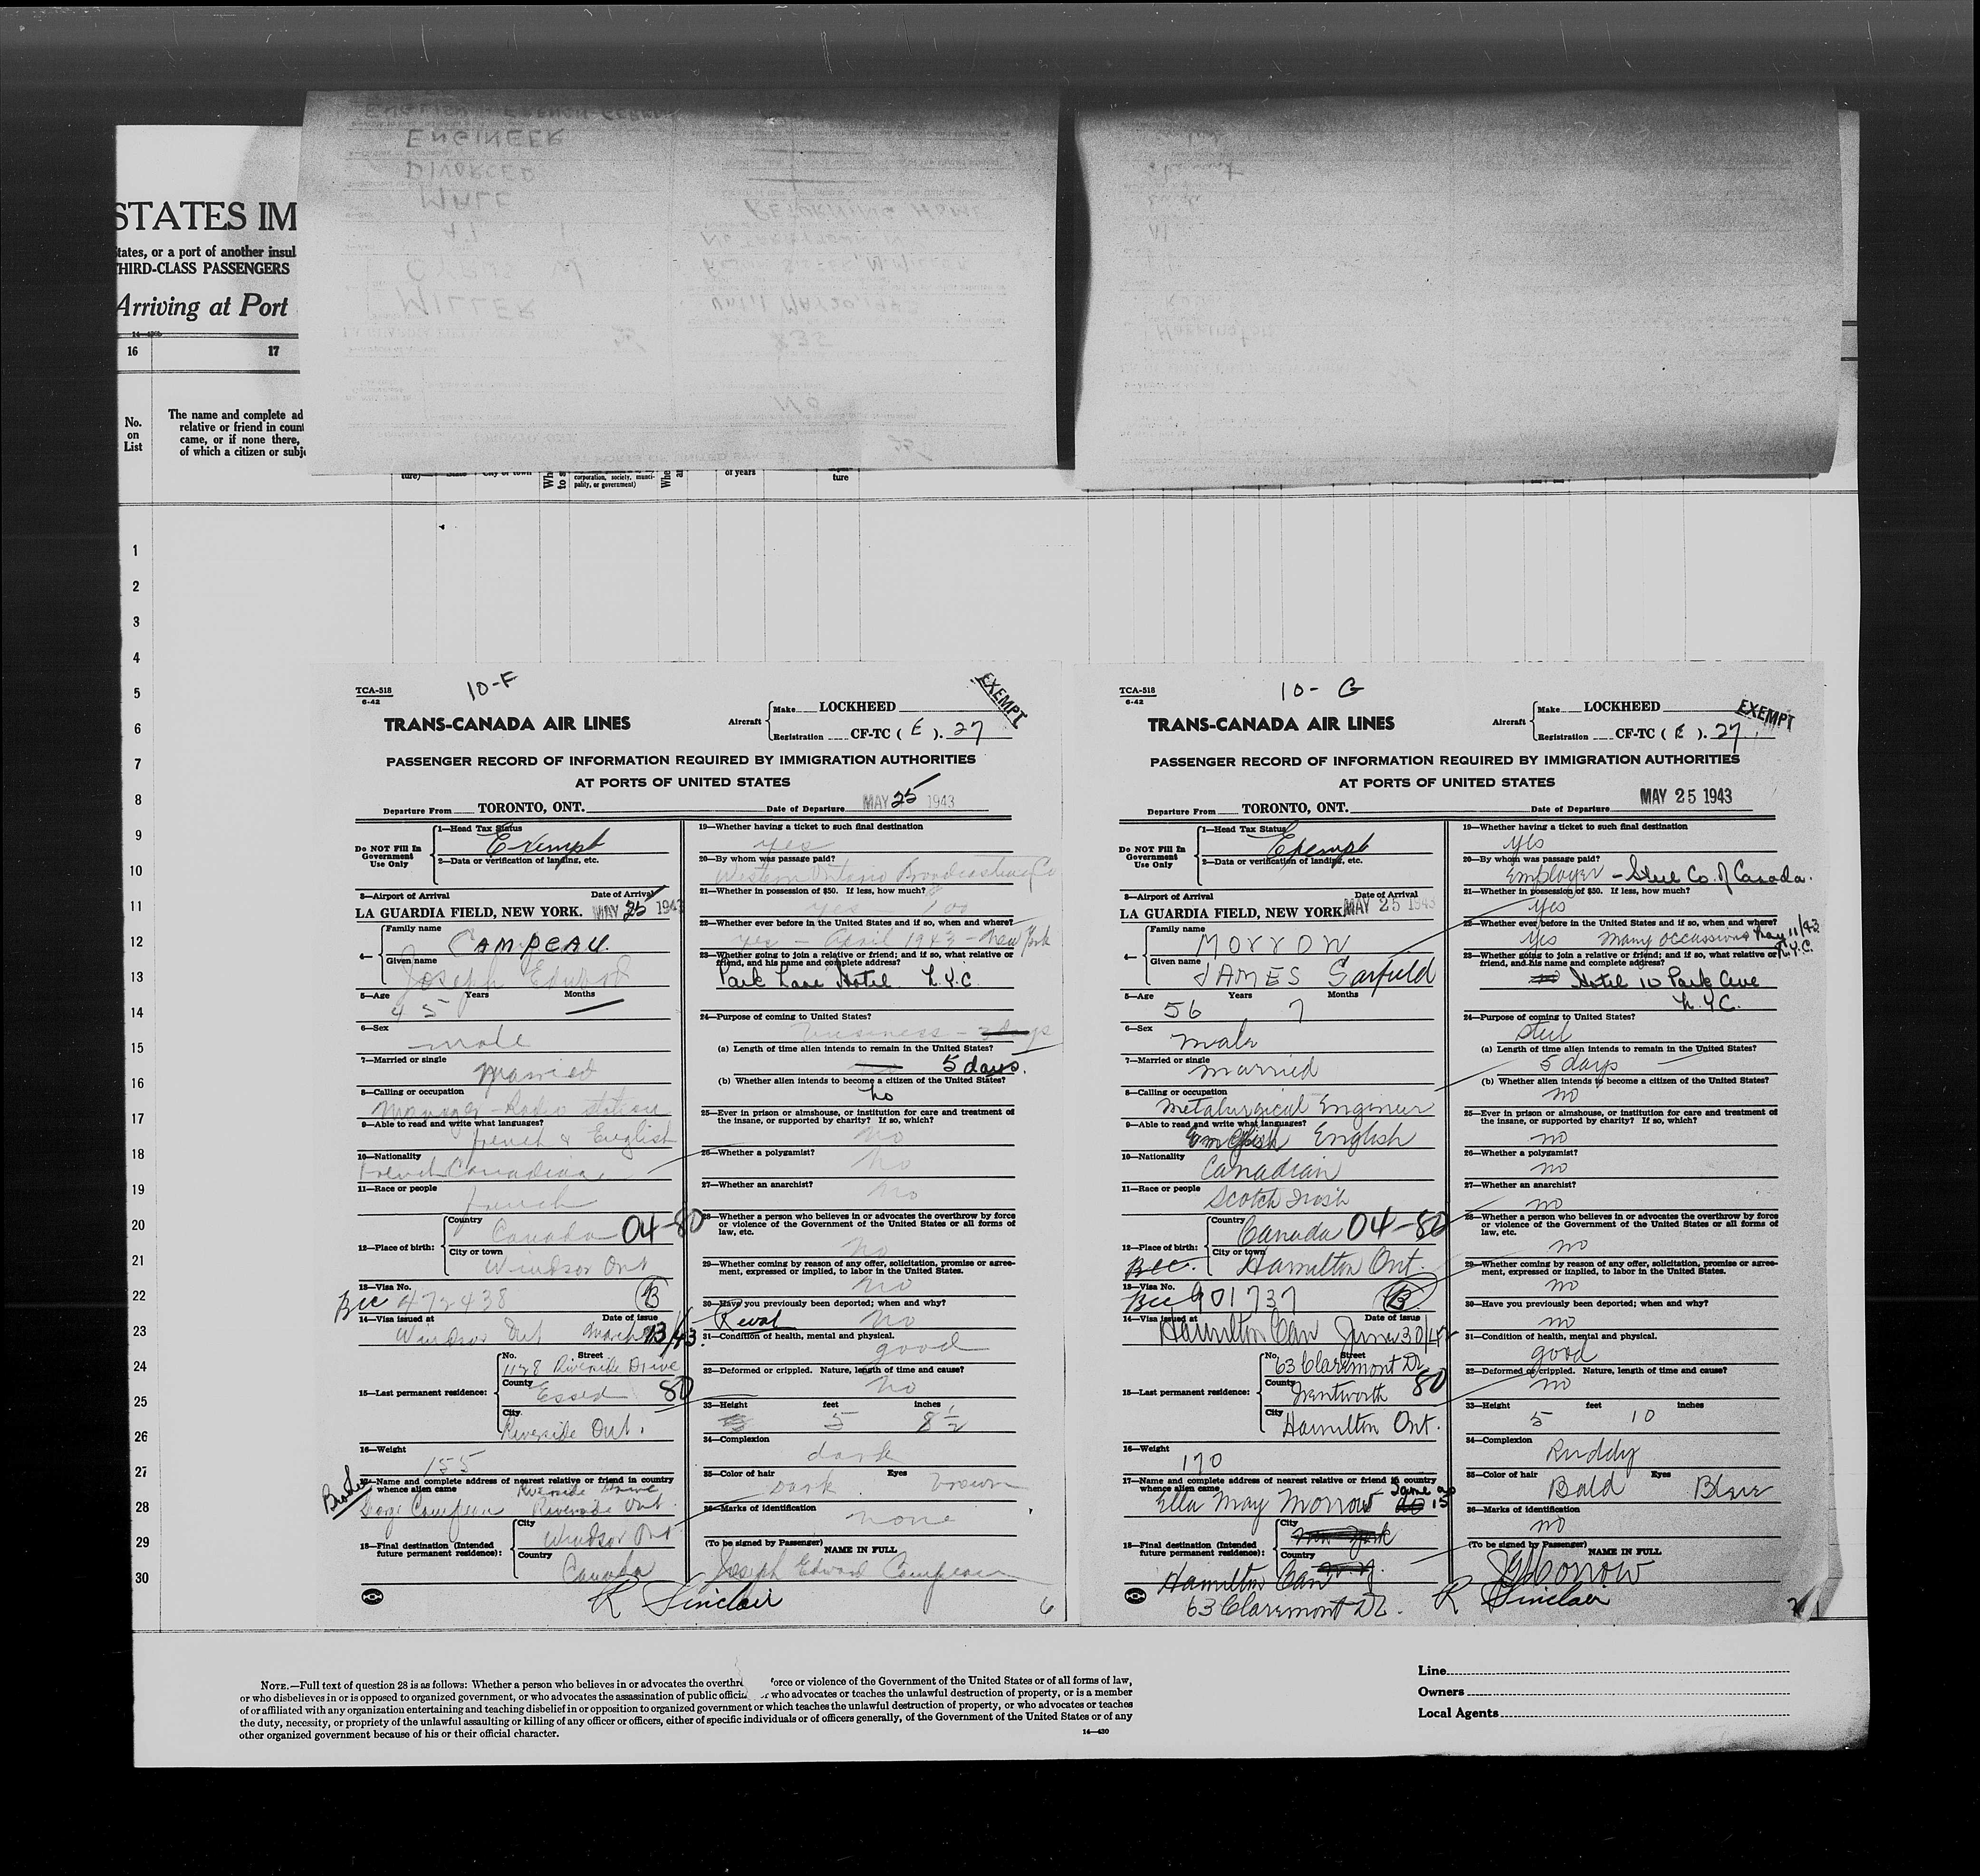 STATES IM
States, or a port of another insul
THIRD-CLASS PASSENGERS
Arriving at Port
16 17
No.
on
List
The name and complete ad
relative or friend in count
came, or if none there,
of which a citizen or subje
ENGINEER
DIVORCED
MALE
RETURNING HOME
MILLER
$35
NO
corporation, society, munci-
pality, or government)
of years
ture
1
2
3
4
5
6
7
8
9
10
11
12
13
14
15
16
17
18
19
20
21
22
23
24
25
26
27
28
29
30
TCA-518
6-42
10-F
EXEMPT
TRANS-CANADA AIR LINES
Aircraft
Make LOCKHEED
Registration CF-TC ( E ). 27
PASSENGER RECORD OF INFORMATION REQUIRED BY IMMIGRATION AUTHORITIES
AT PORTS OF UNITED STATES
Departure From TORONTO, ONT. Date of Departure MAY 25 1943
Do NOT Fill In
Government
Use Only
1—Head Tax Status
Exempt
2—Data or verification of landing, etc.
3—Airport of Arrival Date of Arrival
LA GUARDIA FIELD, NEW YORK. MAY 25 1943
4—
Family name
CAMPEAU
Given name
Joseph Edward
5—Age Years Months
45 —
6—Sex
male
7—Married or single
Married
8—Calling or occupation
Manager - Radio station
9—Able to read and write what languages?
French & English
10—Nationality
French Canadian
11—Race or people
French
12—Place of birth:
Country
Canada 04-80
City or town
Windsor Ont
13—Visa No.
BCC 472438 B
14—Visa issued at Date of issue
Windsor Ont March 23/43.
15—Last permanent residence:
No. Street
1128 Riverside Drive
County
Essex 80
City
Riverside Ont.
16—Weight
155
17—Name and complete address of nearest relative or friend in country
whence alien came
Riverside Drive
Campeau Riverside Ont.
18—Final destination (Intended
future permanent residence):
City
Windsor Ont
Country
Canada
R Sinclair
19—Whether having a ticket to such final destination
yes
20—By whom was passage paid?
Western Ontario Broadcasting Co
21—Whether in possession of $50. If less, how much?
yes — 100
22—Whether ever before in the United States and if so, when and where?
yes - April 1943 - New York
23—Whether going to join a relative or friend; and if so, what relative or
friend, and his name and complete address?
Park Lane Hotel N.Y.C
24—Purpose of coming to United States?
business - 3 days
(a) Length of time alien intends to remain in the United States?
5 days.
(b) Whether alien intends to become a citizen of the United States?
no
25—Ever in prison or almshouse, or institution for care and treatment of
the insane, or supported by charity? If so, which?
no
26—Whether a polygamist?
no
27—Whether an anarchist?
no
28—Whether a person who believes in or advocates the overthrow by force
or violence of the Government of the United States or all forms of
law, etc.
no
29—Whether coming by reason of any offer, solicitation, promise or agree-
ment, expressed or implied, to labor in the United States.
no
30—Have you previously been deported; when and why?
no
31—Condition of health, mental and physical.
good
32—Deformed or crippled. Nature, length of time and cause?
no
33—Height feet inches
5 8½
34—Complexion
dark
35—Color of hair Eyes
Dark brown
36—Marks of identification
none
(To be signed by Passenger) NAME IN FULL
Joseph Edward Campeau
6
TCA-518
6-42
10- G
EXEMPT
TRANS-CANADA AIR LINES
Aircraft
Make LOCKHEED
Registration CF-TC ( E ). 27
PASSENGER RECORD OF INFORMATION REQUIRED BY IMMIGRATION AUTHORITIES
AT PORTS OF UNITED STATES
Departure From TORONTO, ONT. Date of Departure MAY 25 1943
Do NOT Fill In
Government
Use Only
1—Head Tax Status
Exempt
2—Data or verification of landing, etc.
3—Airport of Arrival Date of Arrival
LA GUARDIA FIELD, NEW YORK. MAY 25 1943
4—
Family name
MORROW
Given name
JAMES Garfield
5—Age Years Months
56 7
6—Sex
male
7—Married or single
married
8—Calling or occupation
Metalurgical Engineer
9—Able to read and write what languages?
English
10—Nationality
Canadian
11—Race or people
Scotch Irish
12—Place of birth:
Country
Canada 04-80
City or town
Hamilton Ont.
BCC.
13—Visa No.
BCC 901737 B
14—Visa issued at Date of issue
Hamilton Can June 30/42
15—Last permanent residence:
No. Street
63 Claremont Dr
County
Wentworth 80
City
Hamilton Ont.
16—Weight
170
17—Name and complete address of nearest relative or friend in country
whence alien came
Ella May Morrow Same as 15
18—Final destination (Intended
future permanent residence):
City
New York
Country
Hamilton Can
63 Claremont Dr.
R Sinclair
19—Whether having a ticket to such final destination
yes
20—By whom was passage paid?
Employer - Steel Co. of Canada.
21—Whether in possession of $50. If less, how much?
yes
22—Whether ever before in the United States and if so, when and where?
yes many occassions May 11/43
N.Y.C.
23—Whether going to join a relative or friend; and if so, what relative or
friend, and his name and complete address?
Hotel 10 Park Ave
N.Y.C.
24—Purpose of coming to United States?
Steel
(a) Length of time alien intends to remain in the United States?
5 days
(b) Whether alien intends to become a citizen of the United States?
no
25—Ever in prison or almshouse, or institution for care and treatment of
the insane, or supported by charity? If so, which?
no
26—Whether a polygamist?
no
27—Whether an anarchist?
no
28—Whether a person who believes in or advocates the overthrow by force
or violence of the Government of the United States or all forms of
law, etc.
no
29—Whether coming by reason of any offer, solicitation, promise or agree-
ment, expressed or implied, to labor in the United States.
no
30—Have you previously been deported; when and why?
no
31—Condition of health, mental and physical.
good
32—Deformed or crippled. Nature, length of time and cause?
no
33—Height feet inches
5 10
34—Complexion
Ruddy
35—Color of hair Eyes
Bald Blue
36—Marks of identification
no
(To be signed by Passenger) NAME IN FULL
JGMorrow
NOTE.—Full text of question 28 is as follows: Whether a person who believes in or advocates the overthr force or violence of the Government of the United States or of all forms of law,
or who disbelieves in or is opposed to organized government, or who advocates the assassination of public offici or who advocates or teaches the unlawful destruction of property, or is a member
of or affiliated with any organization entertaining and teaching disbelief in or opposition to organized government or which teaches the unlawful destruction of property, or who advocates or teaches
the duty, necessity, or propriety of the unlawful assaulting or killing of any officer or officers, either of specific individuals or of officers generally, of the Government of the United States or of any
other organized government because of his or their official character.
14—430
Line
Owners
Local Agents